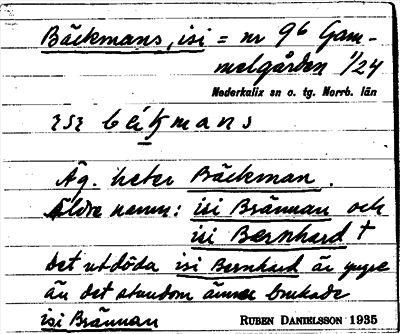 Bäckmans, isi = nr 96 Gam-
melgården 1/24
Nederkalix sn o. tg. Norrb. län
Äg. heter Bäckman.
Äldre namn: isi Brännan och
isi Bernhard †
Det utdöda isi Bernhard är yngre
än det stundom ännu brukade
isi Brännan
RUBEN DANIELSSON 1935